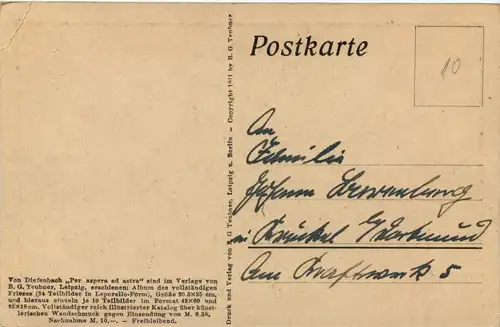 Postkarte
10
An
Familie
Johann
in Brückel b/Dortmund
Am Kraftwerk 5
Von Diefenbach „Per aspera ad astra" sind im Verlage von
B. G. Teubner, Leipzig, erschienen: Album des vollständigen
Frieses (34 Teilbilder in Leporello-Form), Größe 20,5×25 cm,
und hieraus einzeln je 10 Teilbilder im Format 42×80 und
35×18 cm. Vollständiger reich illustrierter Katalog über künst-
lerischen Wandschmuck gegen Einsendung von M. 8.50,
Nachnahme M. 10,—. – Freibleibend.
Druck und Verlag von B. G. Teubner, Leipzig u. Berlin – Copyright 1911 by B. G. Teubner